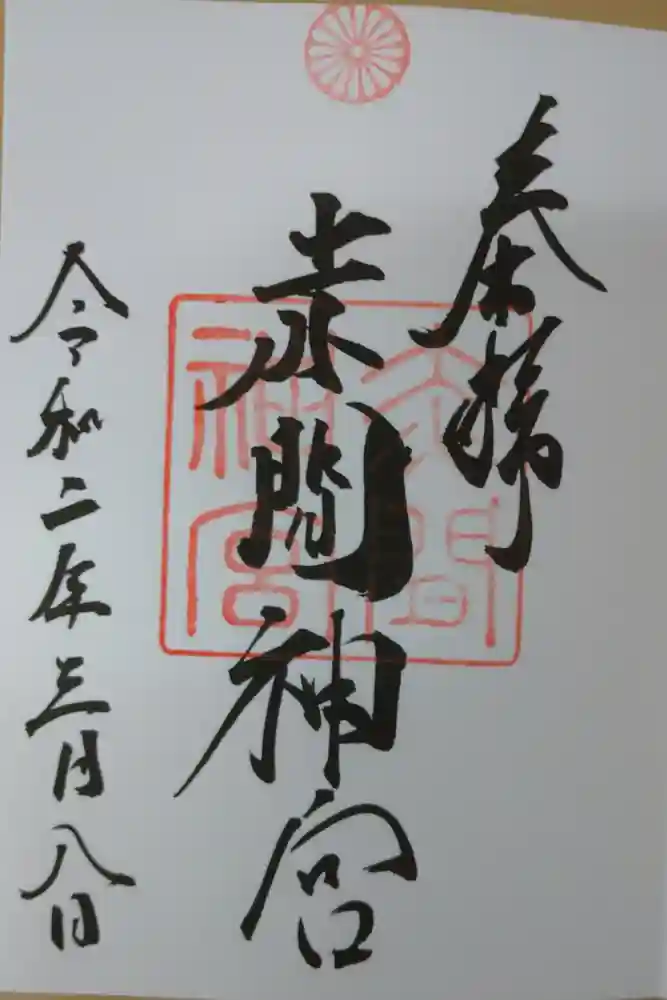 奉拝
赤間神宮
赤間
神宮
令和二年三月八日